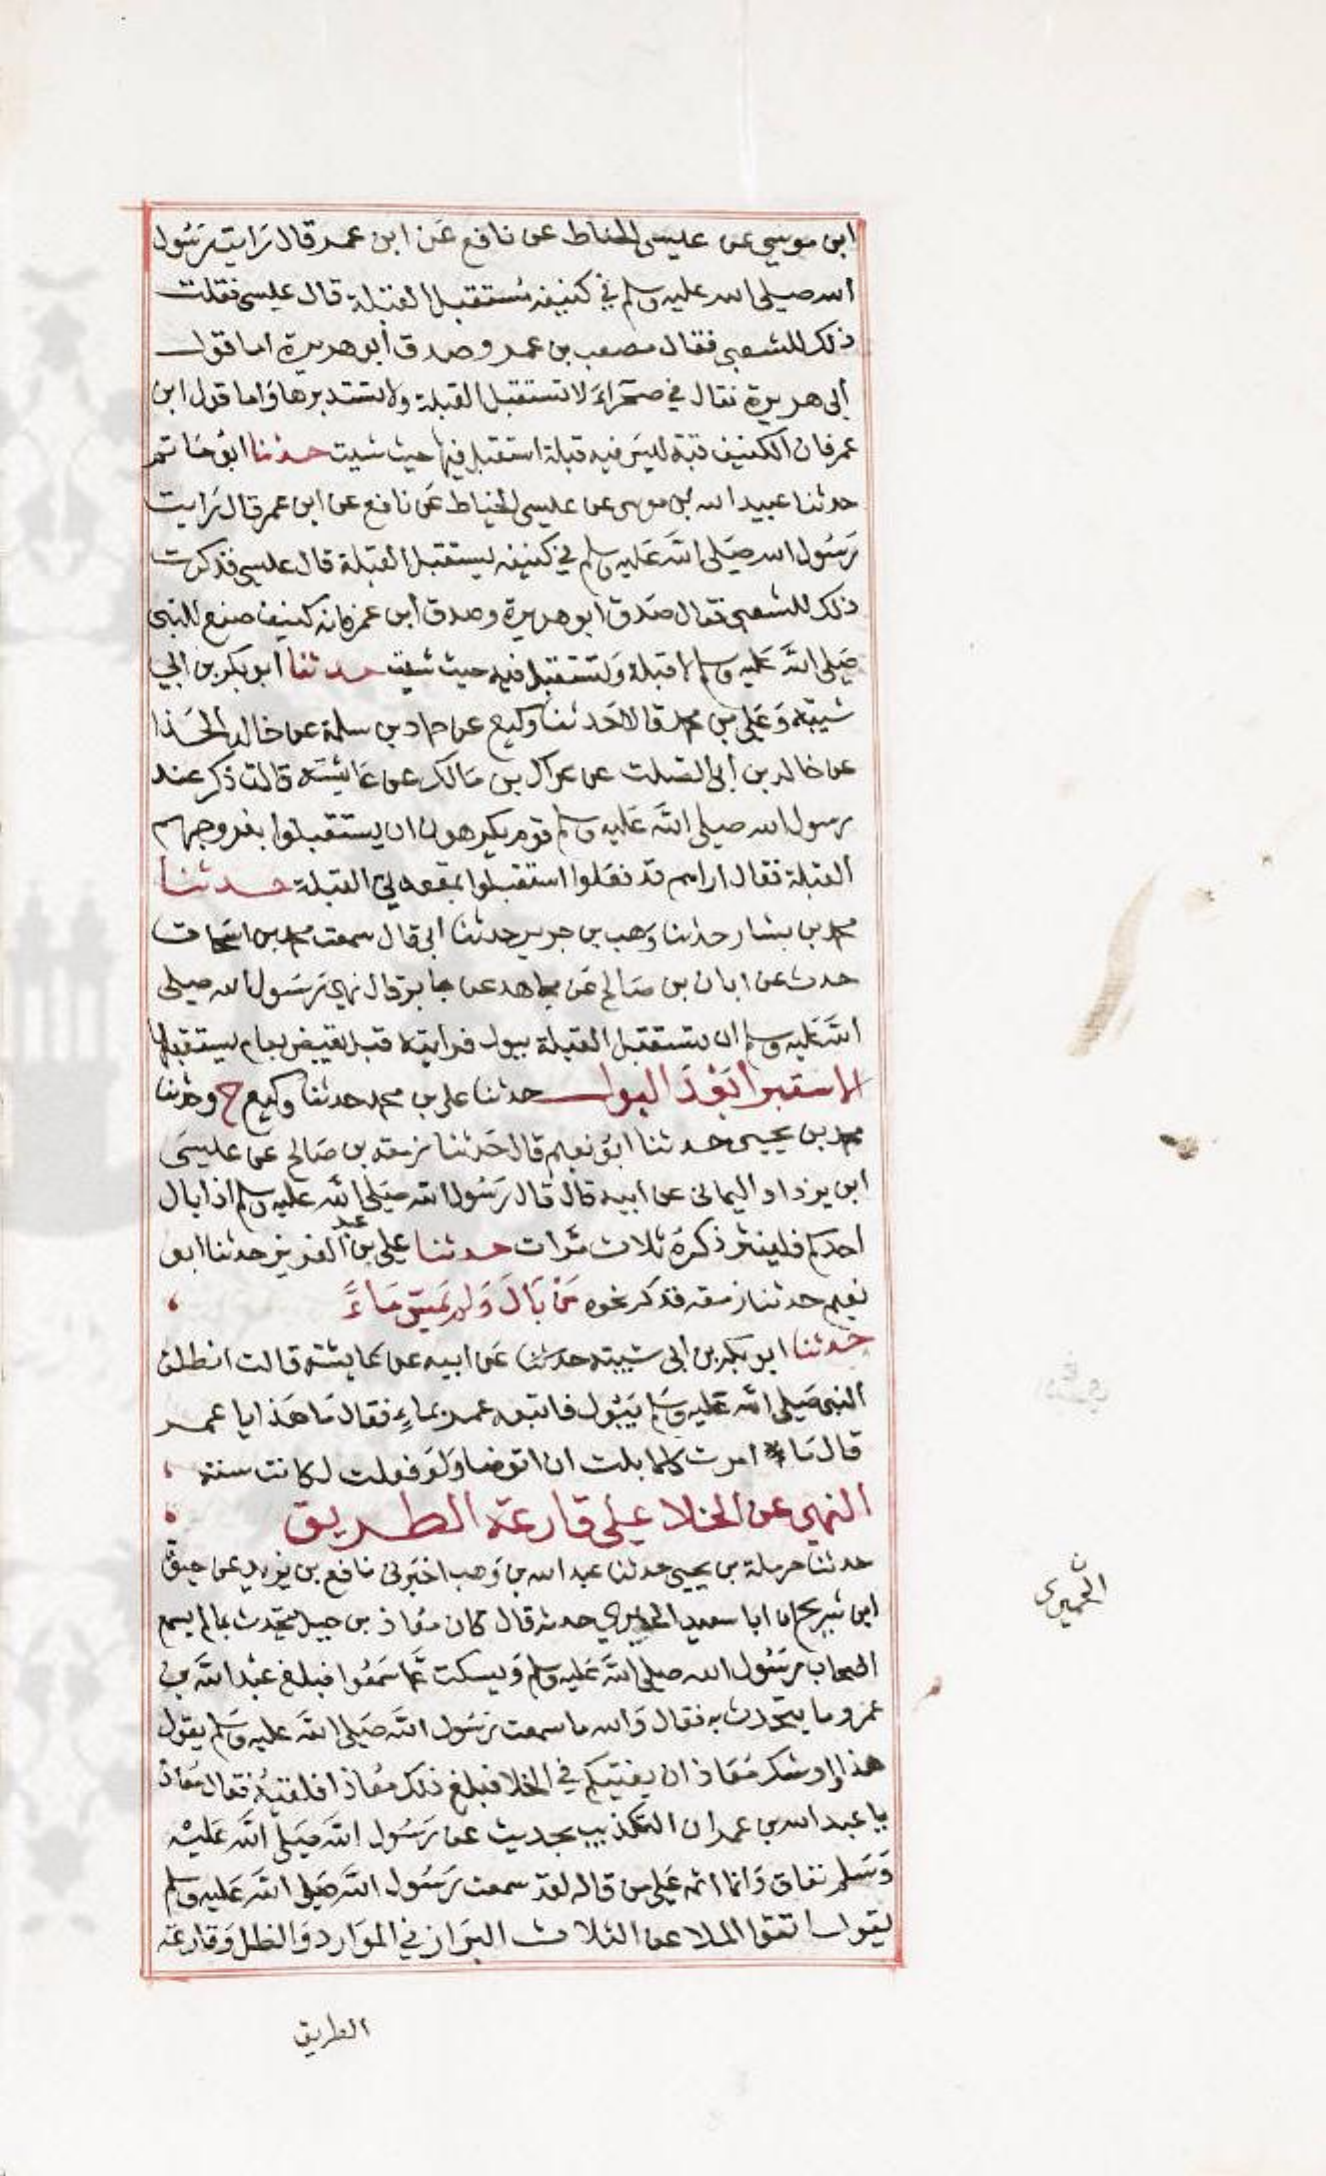 ابن موسي عن عليسي الحناط عن نافع عَن ابن عمر قال رَايت رَسُول
الله صلي الله عليه وسلم في كنيفه مُستقبل القبلة قال عليسي فقلت
ذلك للشعبي فقال مصعب بن عمر وصدق أبو هريرة اما قول
أبي هريرة فقال في صحراءَ لا تستقبل القبلة ولا تستدبرها وَاما قول ابن
عمر فان الكنيف قبّة ليسَ فيه قبلة استقبل فيها حيث شيت حدثنا ابوُ حَاتم
حدثنا عبيد الله بن موسي عن عليسي الخياط عَن نافع عن ابن عمر قال رَايت
رَسُول الله صَلي اللَّه عَليه وسلم في كنيفه يستقبل القبلة قال عليسي فذكرت
ذلك للشعبي فقال صَدق ابو هريرة وصدق أبن عمر فانه كنيف صنع للنبي
صَلي اللَّه عَليه وسلم لا قبلة وَتستقبل فيه حيث شيت حدثنا أبو بكر بن ابي
شيبة وَعَلي بن محمد قالا حَدثنا وكيع عن حماد بن سلمة عن خالد الحَذا
عن خالد بن أبي الصَلت عن عراك بن مَالك عن عَايشَة قالت ذكر عند
رسول الله صلي اللَّه عَليه وسلم قوم يكرهون ان يستقبلوا بفروجهم
القبلة فقال اراهم قد فعَلوا استقبلوا بمقعدي القبلة حدثنا
محمد بن بشار حدثنا وَهب بن جرير حدثنا ابي قال سمعت محمد بن اسحاق
حدث عن ابان بن صَالح عَن مجاهد عن جابر قال نهي رَسَول الله صلي
اللَّه عَليه وسلم ان يستقبل القبلة ببول فرايته قبل يقبض بعام يستقبلها
الاستبرا بَعْدَ البول حدثنا علي بن محمد حدثنا وكيع ح وحدثنا
محمد بن يحيي حدثنا ابوُ نعيم قال حَدثنا زمعه بن صَالح عن عليسَي
ابن يزداد اليماني عن أبيه قال قال رَسُول الله صَلي الله عليه وسلم اذا بال
احدكم فلينتر ذكرهَ ثلاث مَرات حدثنا علي بن عبد العزيز حدثنا ابو
نعيم حدثنا زمعه فذكر نحوه مَن بَالَ وَلم يَمسّ مَاءً
حَدثنا ابو بكر بن ابي شيبته حدثنا عَن ابيه عن عَايشة قالت انطلق
النبي صَلي الله عَليه وَسَلم يَبُول فاتبعه عمر بماءٍ فقال مَا هَذا يا عمر
قال مَا امرت كلما بلت ان اتوضا وَلو فعلت لكانت سنة
النهي عن الخلا علي قارعة الطريق
حدثنا حرملة بن يحيي حدثنا عبد الله بن وَهب اخبَرني نافع بن يزيد عن حيوة
ابن شريح ان ابا سعيد الحميري حدثه قال كان معَاذ بن جبل يتحدث بما لم يسمع
اصحاب رَسُول الله صلي اللَّه عَليه وسلم وَيسكت عَما سَمعوا فبلغ عَبْد اللَّه بن
عَمرو ما يتحدث به فقال وَالله ما سمعت رَسُول اللَّه صَلي اللَّه عليه وسَلم يقول
هذا واوشك مُعَاذ ان يفتيكم في الخلا فبلغ ذلك معُاذا فلقيهُ فقال مُعَاذ
يا عبد الله بن عمر ان التكذيب بحديث عن رَسُول اللَّه صَلي اللَّه عَليْه
وَسَلم نفاق وَانما اثمه عَلي من قاله لقد سمعت رَسُول اللَّه صَلي اللَّه عَليه وسلم
يقول اتقوا الملاعن الثلاث البَراز في الموَارد وَالظل وَقارعَة
الحميري ن
الطريق